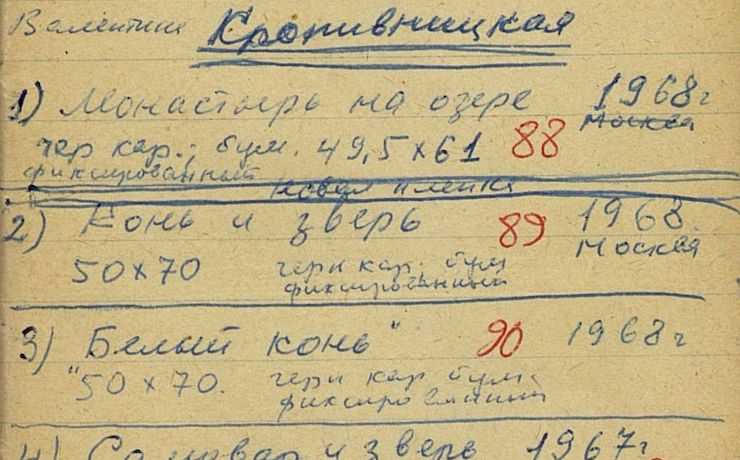 Валентина Кропивницкая
1) Монастырь на озере 1968 г
Москва
чер кар., бум. 49,5 х 61 88
фиксированный
новая пленка
2) Конь и зверь 89 1968.
Москва
50 х 70 черн кар. бум
фиксированный
3) Белый конь" 90 1968 г
"50 х 70. черн кар бум.
фиксированный
4) Самовар и зверь 1967 г